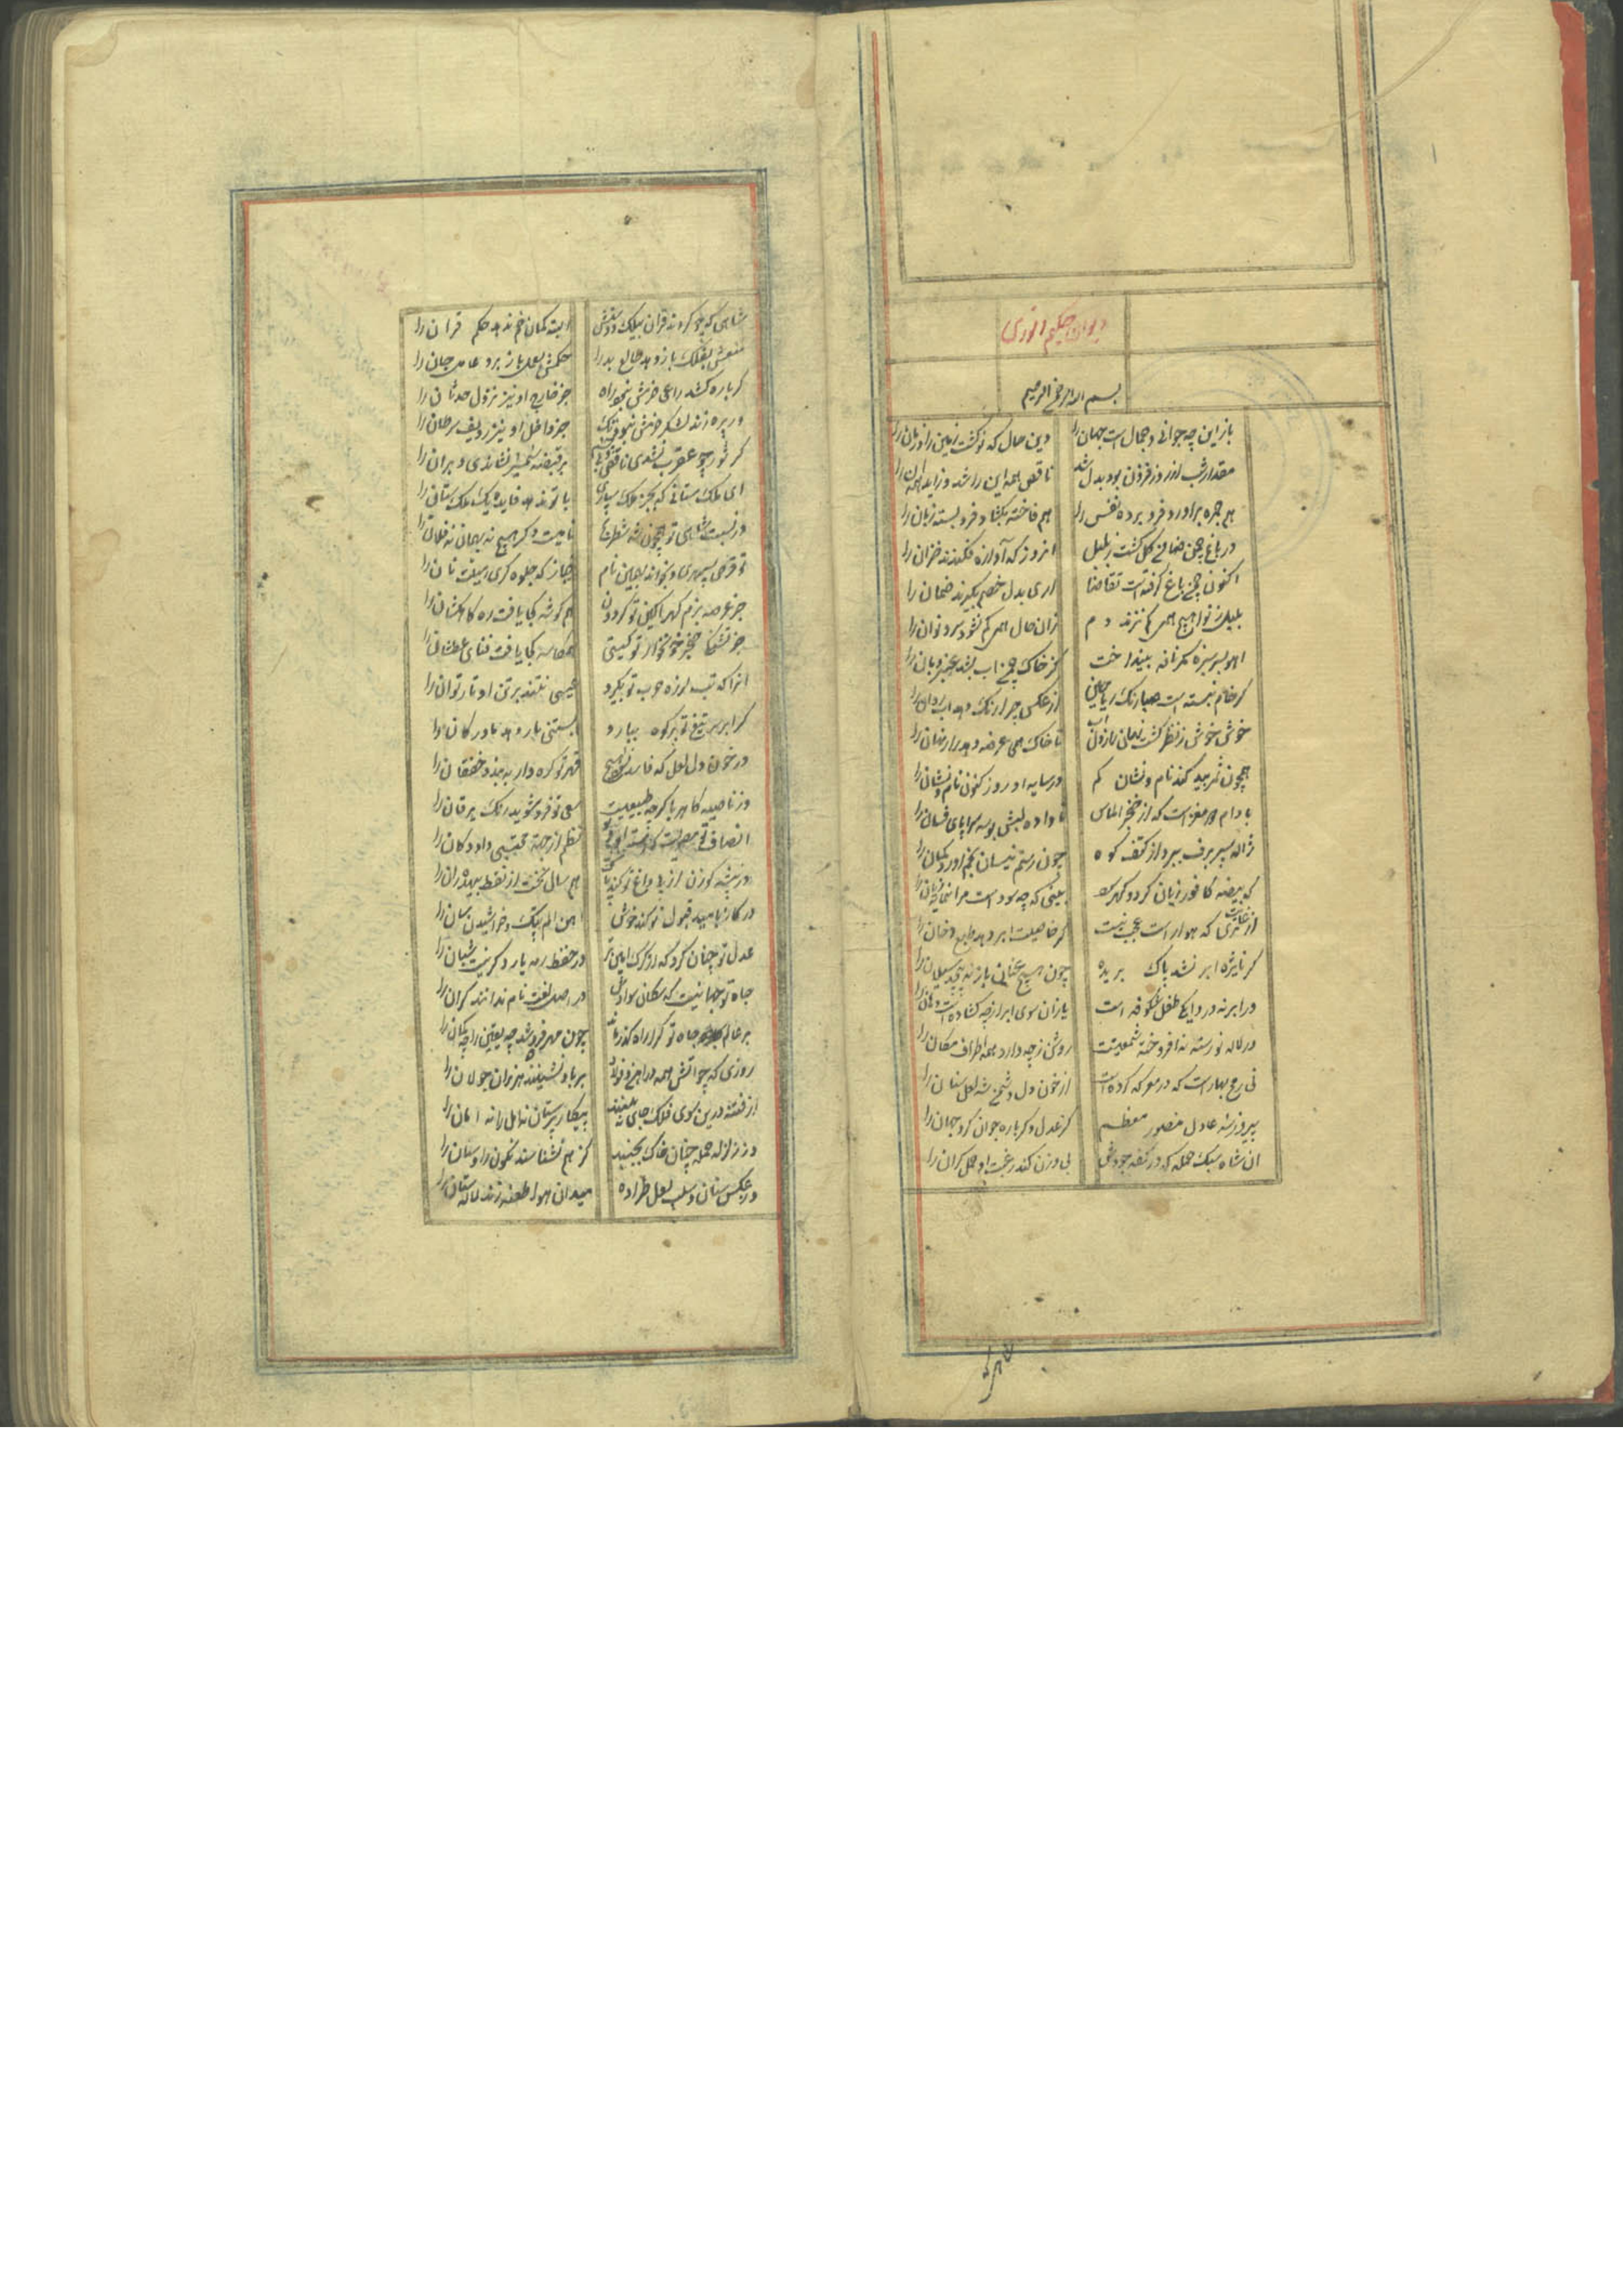 دیوان حکیم انوری
بسم الله الرحمن الرحیم
باز این چه جوانی و جمال است جهان را وین حال که نو گشت زمین را و زمان را
مقدار شب از روز فزون بود بدل شد ناقص همه این را شد و زاید همه آن را
هم جمره براورد فرو برده نفس را هم فاخته بکشاد فرو بسته زبان را
در باغ چمن ضامن کل کشت ز بلبل انروز که آوازه فکندند خزان را
اکنون چمن باغ کرفتست تقاضا اری بدل خصم بگیرند ضمان را
بلبل ز نوا هیچ همی کم نزند دم زان حال همی کم نشود سرو نوان را
اهو بسر سبزه مکر نافه بینداخت کز خاک چمن اب بشد عنبر و بان را
کر خام نبسته است صبا رنک ریاحین از عکس چرا رنک دهد اب روان را
خوش خوش ز نظر کشت نهان راز دل اب تا خاک همی عرضه دهد راز نهان را
همچون ثمر بید کند نام و نشان کم در سایه او روز کنون نام و نشان را
بادام دو مغز است که از خنجر الماس ناداده لبش بوسه سراپای فسان را
ژاله سپر برف ببرد از کتف کوه چون رستم نیسان بخم اورد کمان را
که بیضه کافور زیان کرد و کهر سود بینی که چه سود است مر این مایه زیان را
از غایت تری که هوا راست عجب نیست کر خاصیت ابر دهد طبع دخان را
کر نایژه ابر نشد پاک بریده چون هیچ عنان باز نه پیچد سیلان را
ور ابر نه در دایکی طفل شکوفه است یازان سوی ابر از چه کشاده است دهان را
ور لاله نورسته نه افروخته شمعیست روشن ز چه دارد همه اطراف مکان را
نی رمح بهار است که در معرکه کرده است از خون دل دشمن شه لعل سنان را
پیروز شه عادل منصور معظم کز عدل دکر باره جوان کرد جهان را
ان شاه سبک حمله که در کفه جودش بی وزن کند رغبت او حمل کران را
شاهی
شاهی که چو کردند قران بیلک و دستش البته کمان خم ندهد حکم قران را
تیغش بفلک باز دهد طالع بد را حکمش بعمل باز برد عامل جان را
کر باره کشد راعی حزمش نبود راه جز خارج او نیز نزول حدثان را
ور پره زند لشکر عزمش نبود تک جز داخل او نیز ردیف سرطان را
کر ثور چو عقرب نشدی ناقص و بی چشم بر قبضه شمشیر نشاندی دبران را
ای ملک ستانی که بجز ملک سپاری با تو ندهد فایده یک ملک ستان را
در نسبت شاهی تو همچون شه شطرنج نامیست دکر هیچ نه بهمان نه فلان را
تو قرص سپهری و بخواند بهمین نام خباز که جلوه کری هیئت نان را
جز عرصه بزم کهر اکین تو کردون هم کوشه کجا یافت ره کاهکشان را
جز تشنکی خنجر خونخوار تو کیتی همکاسه کجا یافت فنای عطشان را
انرا که تب لرزه حرب تو بگیرد عیسی نتند بر تن او تار توان را
کر ابر سر تیغ تو بر کوه ببارد ابستنی نار دهد مادر کان را
در خون دل لعل که فاسد نشود هیچ قهر تو کره وار ببندد خفقان را
وز ناصیه کاهربا کرچه طبیعیست سعی تو فرو شوید رنک یرقان را
در بیشه کوزن از پی داغ تو کند پاک هم سال نخست از نقط بیهده ران را
در کاز بامید قبول تو کند خوش اهن الم پتک و خراشیدن سان را
عدل تو چنان کرد که از کرک امین تر در حفظ رمه یار دکر نیست شبان را
جاه تو جهانیست که سکان سوادش در اصل لغت نام ندانند کران را
بر عالم جاه تو کرا راه کذر ماند چون مهر فرو شد چه یقین را چه کمان را
روزی که چو اتش همه در اهن و فولاد بر باد نشینند هزبران جولان را
از فتنه درین سوی فلک جای نبینند پیکار پرستان نه امل را نه امان را
وز زلزله حمله چنان خاک بجنبد کز هم نشناسند نکون را و ستان را
وز عکس سنان و سلب لعل طراده میدان هوا طعنه زند لاله ستان را